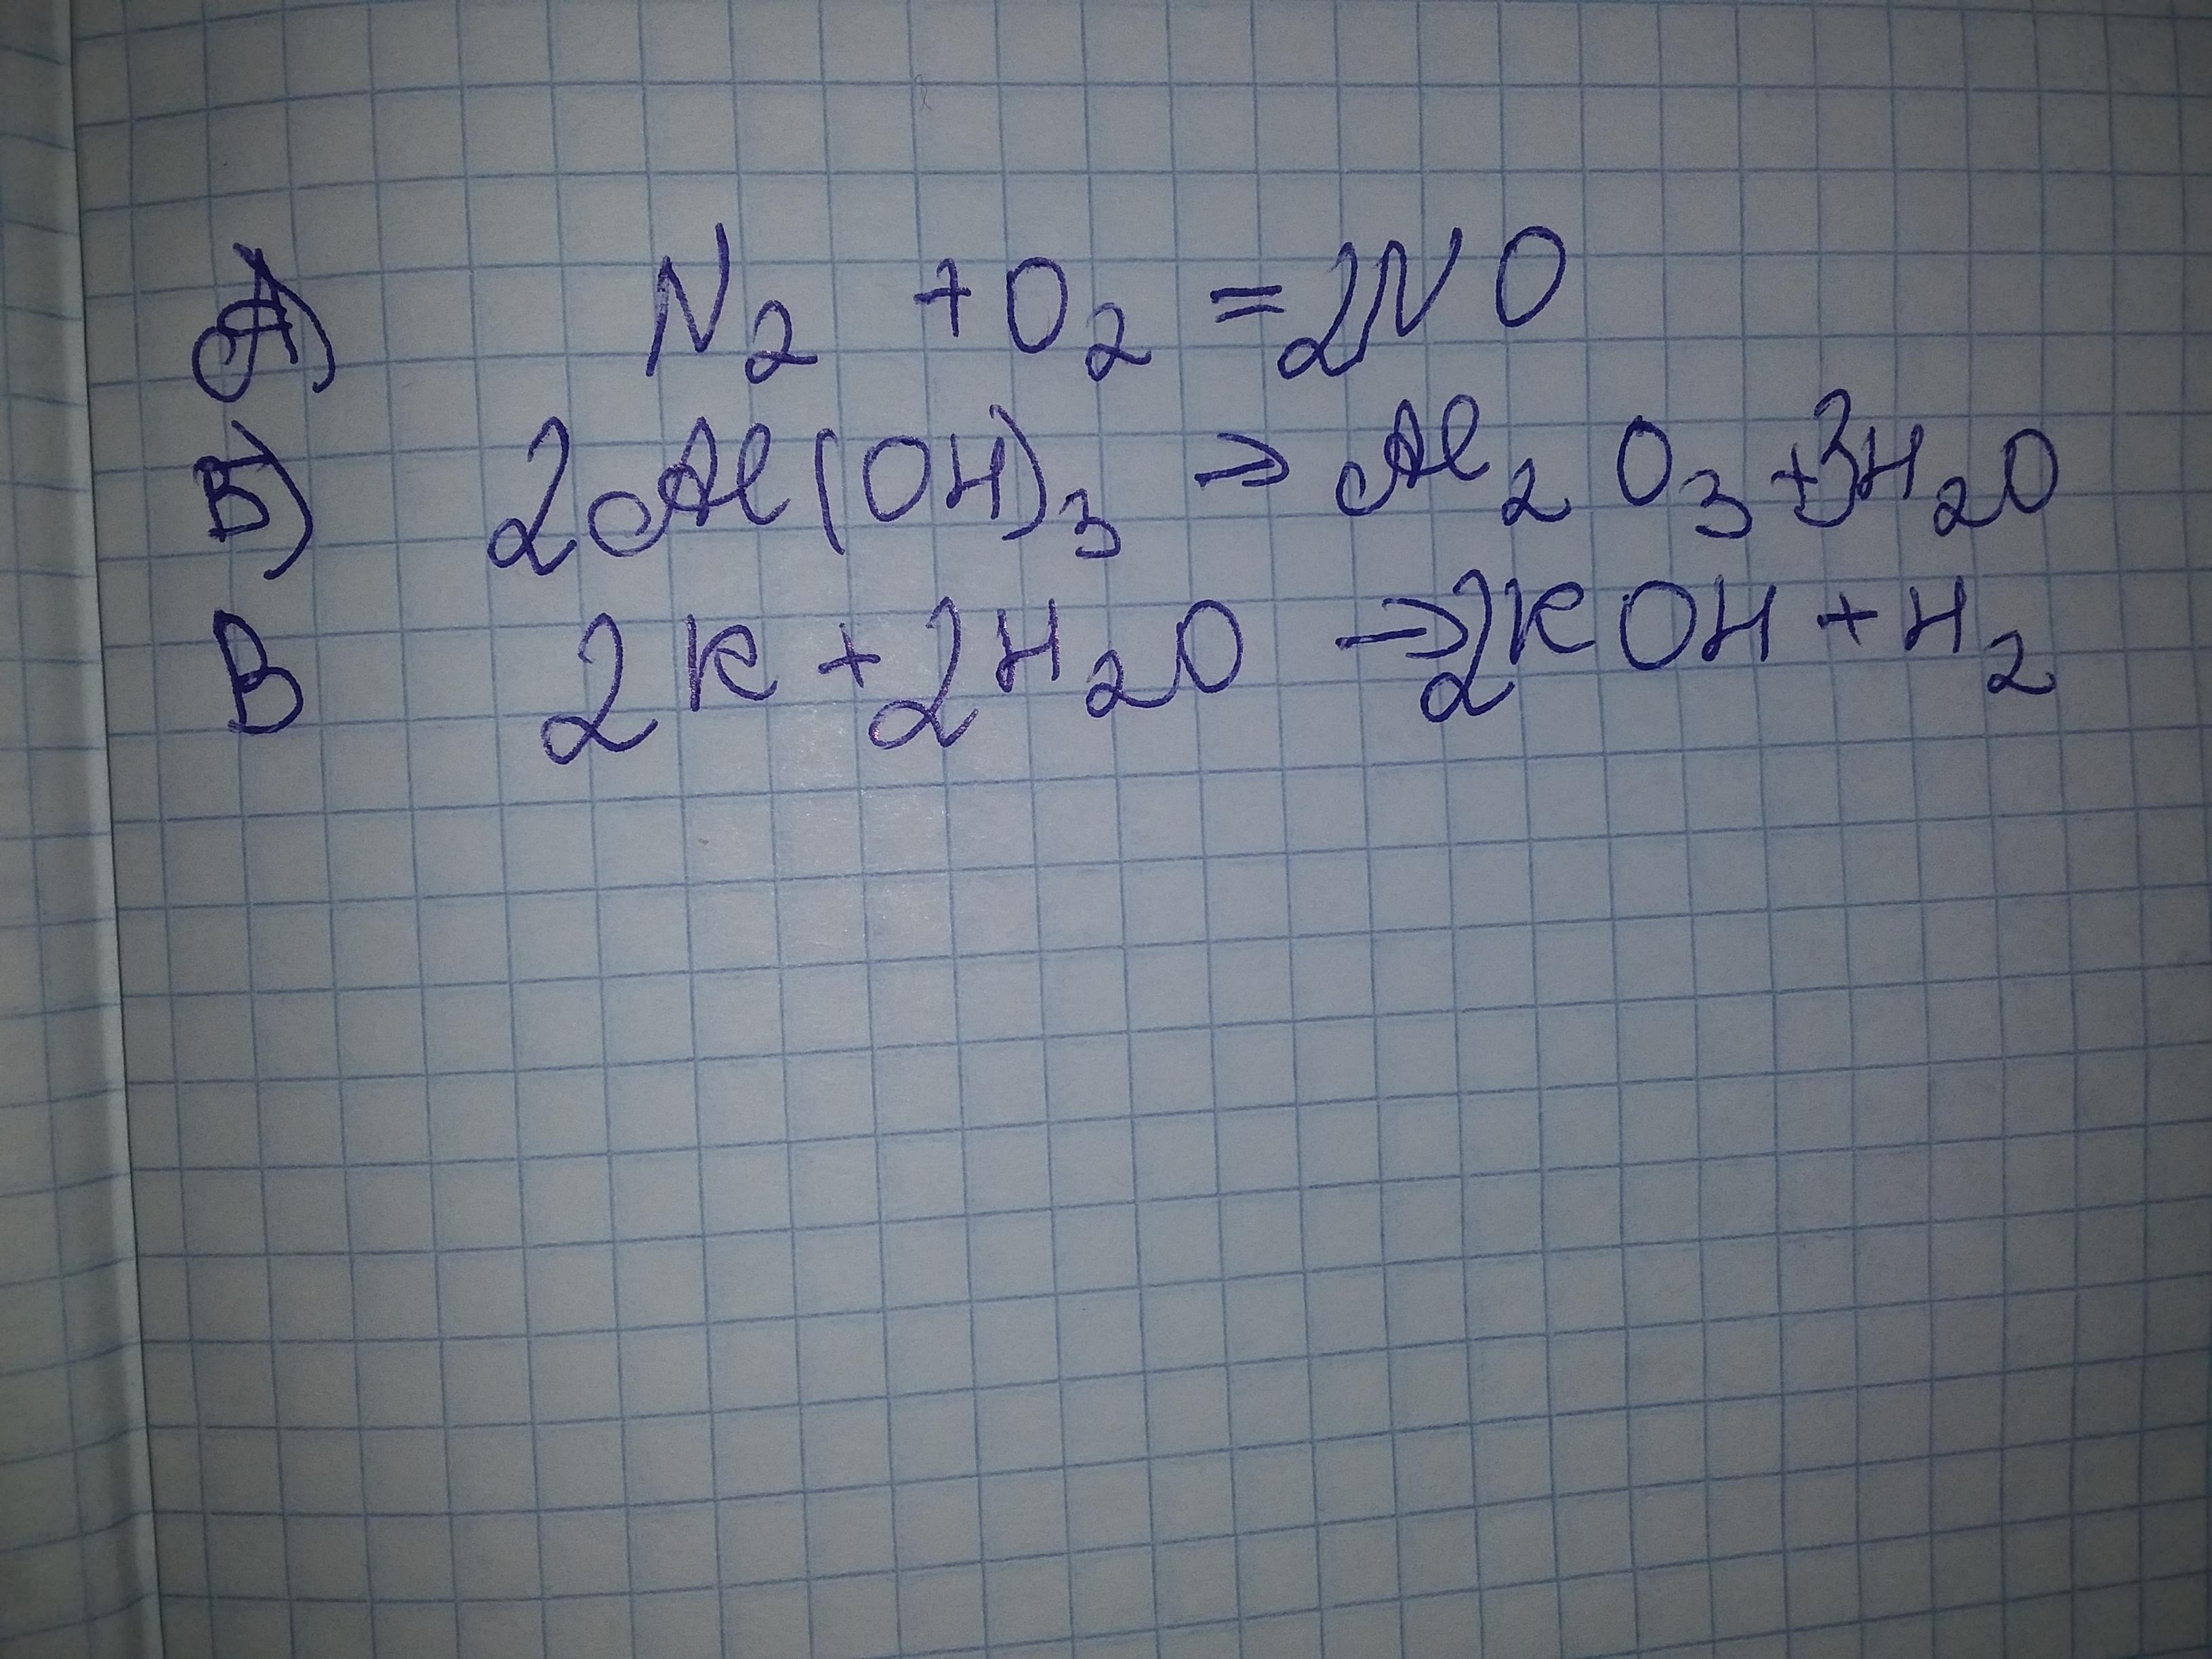 А) N₂ + O₂ = 2NO
Б) 2Al(OH)₃ → Al₂O₃ + 3H₂O
В 2K + 2H₂O → 2KOH + H₂